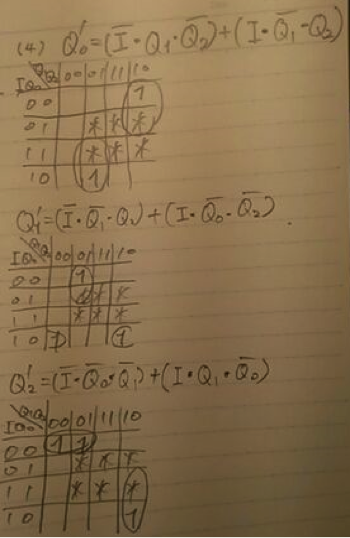 (4) Q₀' = (Ī · Q₁ · Q̄₂) + (I · Q̄₁ · Q₂)
IQ₀ \ Q₁Q₂ 00 01 11 10
00 1
01 * * *
11 * * *
10 1
Q₁' = (Ī · Q̄₁ · Q₂) + (I · Q̄₀ · Q̄₂) .
IQ₀ \ Q₁Q₂ 00 01 11 10
00 1
01 * * *
11 * * *
10 1 1
Q₂' = (Ī · Q̄₀ · Q̄₁) + (I · Q₁ · Q̄₀)
IQ₀ \ Q₁Q₂ 00 01 11 10
00 1 1
01 * * *
11 * * *
10 1